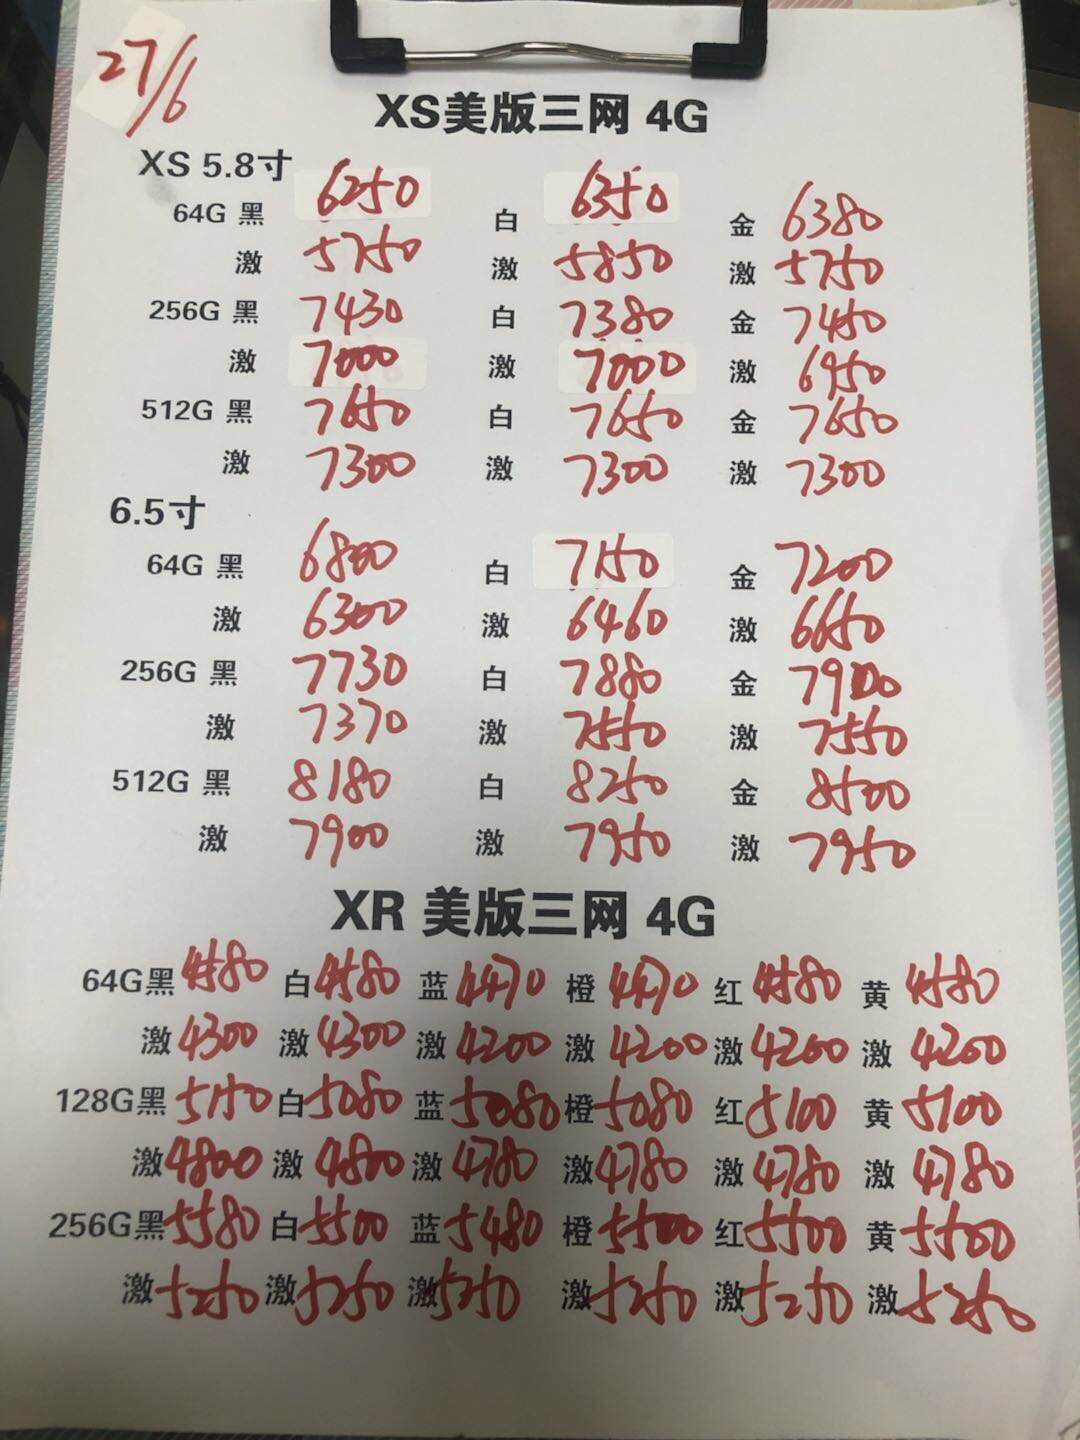 27/6
XS美版三网 4G
XS 5.8寸
64G 黑 6250 白 6350 金 6380
激 5750 激 5850 激 5750
256G 黑 7430 白 7380 金 7450
激 7000 激 7000 激 6950
512G 黑 7650 白 7650 金 7650
激 7300 激 7300 激 7300
6.5寸
64G 黑 6800 白 7150 金 7200
激 6300 激 6460 激 6650
256G 黑 7730 白 7880 金 7900
激 7370 激 7550 激 7550
512G 黑 8180 白 8250 金 8500
激 7900 激 7950 激 7950
XR 美版三网 4G
64G黑 4580 白 4580 蓝 4470 橙 4470 红 4580 黄 4580
激 4300 激 4300 激 4200 激 4200 激 4200 激 4200
128G黑 5150 白 5080 蓝 5080 橙 5080 红 5100 黄 5100
激 4800 激 4800 激 4780 激 4780 激 4780 激 4780
256G黑 5580 白 5500 蓝 5480 橙 5500 红 5500 黄 5500
激 5250 激 5250 激 5250 激 5250 激 5250 激 5250